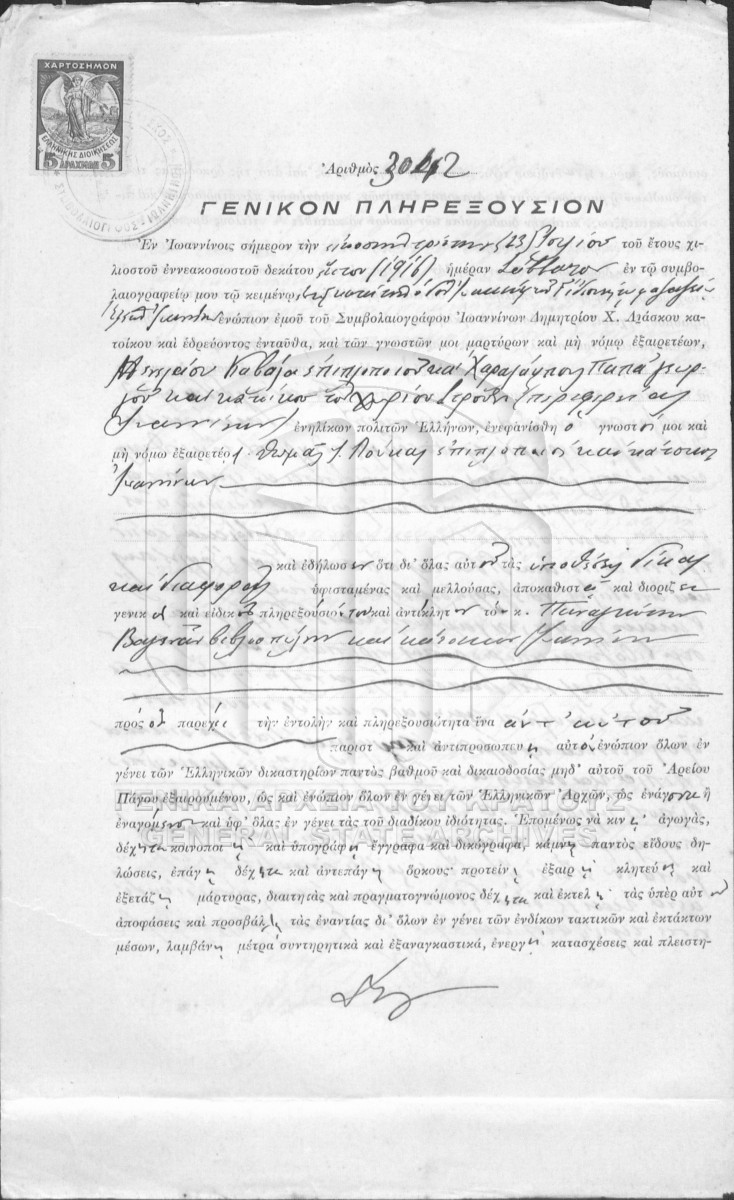 ΧΑΡΤΟΣΗΜΟΝ
ΕΛΛΗΝΙΚΗΣ ΔΙΟΙΚΗΣΕΩΣ
5 ΔΡΑΧΜΑΙ 5
Ἀριθμὸς 3042
ΓΕΝΙΚΟΝ ΠΛΗΡΕΞΟΥΣΙΟΝ
Ἐν Ἰωαννίνοις σήμερον τὴν εἰκοστὴν τρίτην (23) Ἰουλίου τοῦ ἔτους χι-
λιοστοῦ ἐννεακοσιοστοῦ δεκάτου ἕκτου (1916) ἡμέραν Σάββατον ἐν τῷ συμβο-
λαιογραφείῳ μου τῷ κειμένῳ
ἐνώπιον ἐμοῦ τοῦ Συμβολαιογράφου Ἰωαννίνων Δημητρίου Χ. Λιάσκου κα-
τοίκου καὶ ἑδρεύοντος ἐνταῦθα, καὶ τῶν γνωστῶν μοι μαρτύρων καὶ μὴ νόμῳ ἐξαιρετέων,
Καβάλα ἐπιπλοποιοῦ καὶ Χαραλάμπου Παπαγεωρ-
γίου καὶ κατοίκου τοῦ χωρίου
Ἰωαννίνων ἐνηλίκων πολιτῶν Ἑλλήνων, ἐνεφανίσθη ὁ γνωστός μοι καὶ
μὴ νόμῳ ἐξαιρετέος Θωμᾶς Λούκας ἐπιπλοποιὸς καὶ κάτοικος
Ἰωαννίνων
καὶ ἐδήλωσεν ὅτι δι' ὅλας αὐτοῦ τὰς ὑποθέσεις δίκας
καὶ διαφορὰς ὑφισταμένας καὶ μελλούσας, ἀποκαθιστᾷ καὶ διορίζει
γενικὸν καὶ εἰδικὸν πληρεξούσιόν του καὶ ἀντίκλητον τὸν κ. Παναγιώτην
βιβλιοπώλην καὶ κάτοικον Ἰωαννίνων
πρὸς ὃν παρέχει τὴν ἐντολὴν καὶ πληρεξουσιότητα ἵνα ἀντ' αὐτοῦ
παριστ καὶ ἀντιπροσωπεύῃ αὐτὸν ἐνώπιον ὅλων ἐν
γένει τῶν Ἑλληνικῶν δικαστηρίων παντὸς βαθμοῦ καὶ δικαιοδοσίας μηδ' αὐτοῦ τοῦ Ἀρείου
Πάγου ἐξαιρουμένου, ὡς καὶ ἐνώπιον ὅλων ἐν γένει τῶν Ἑλληνικῶν Ἀρχῶν, ὡς ἐνάγοντα ἢ
ἐναγόμενον καὶ ὑφ' ὅλας ἐν γένει τὰς τοῦ διαδίκου ἰδιότητας. Ἑπομένως νὰ κινῇ ἀγωγάς,
δέχηται κοινοποι ῇ καὶ ὑπογράφῃ ἔγγραφα καὶ δικόγραφα, κάμνῃ παντὸς εἴδους δη-
λώσεις, ἐπάγῃ δέχηται καὶ ἀντεπάγῃ ὅρκους· προτείνῃ ἐξαιρῇ κλητεύῃ καὶ
ἐξετάζῃ μάρτυρας, διαιτητὰς καὶ πραγματογνώμονας δέχηται καὶ ἐκτελῇ τὰς ὑπὲρ αὐτοῦ
ἀποφάσεις καὶ προσβάλῃ τὰς ἐναντίας δι' ὅλων ἐν γένει τῶν ἐνδίκων τακτικῶν καὶ ἐκτάκτων
μέσων, λαμβάνῃ μέτρα συντηρητικὰ καὶ ἐξαναγκαστικά, ἐνεργῇ κατασχέσεις καὶ πλειστη-
ΓΕΝΙΚΑ ΑΡΧΕΙΑ ΤΟΥ ΚΡΑΤΟΥΣ
GENERAL STATE ARCHIVES